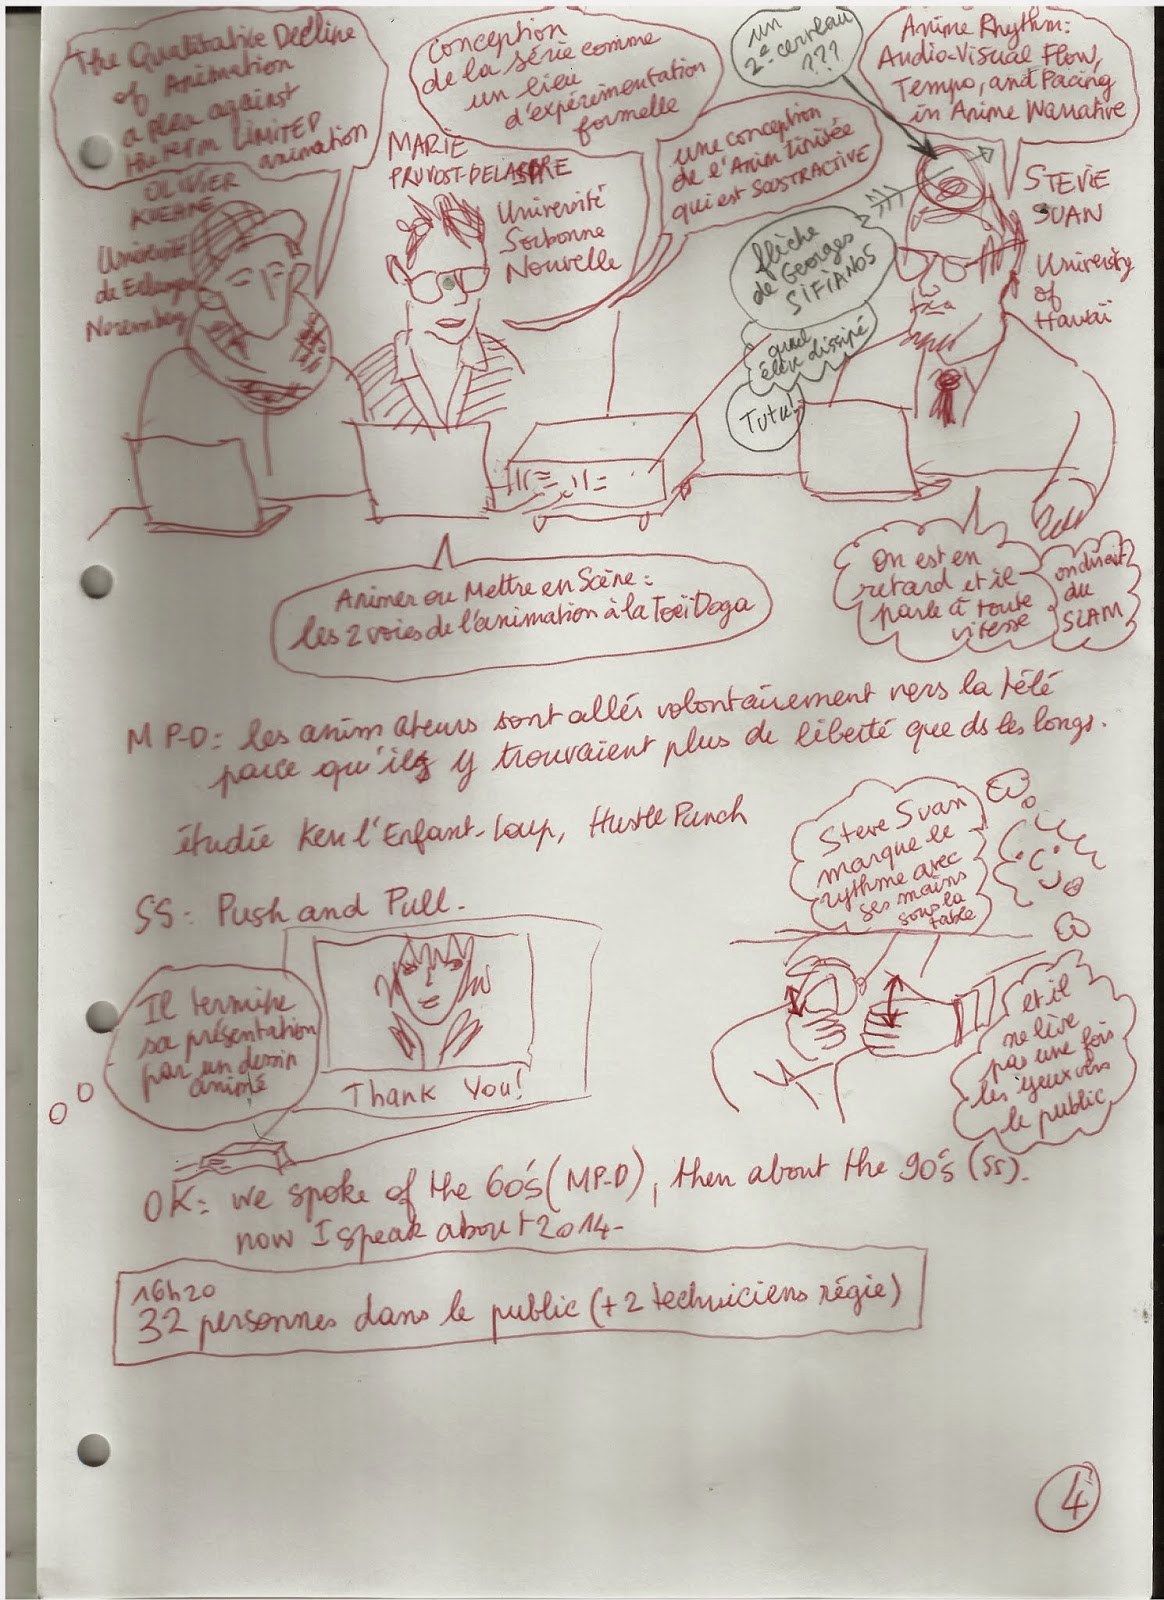 The Qualitative Decline
of Animation
a plea against
the term LIMITED
animation
OLIVIER
KUEHNE
Université
de Erlangen
Nuremberg
Conception
de la série comme
un lieu
d'expérimentation
formelle
MARIE
PRUVOST-DELASPRE
Université
Sorbonne
Nouvelle
une conception
de l'Anim limitée
qui est SOUSTRACTIVE
un
2e cerveau
???
Anime Rhythm:
Audio-Visual Flow,
Tempo, and Pacing
in Anime Narrative
STEVIE
SUAN
University
of
Hawaï
flèche
de Georges
SIFIANOS
quel
élève dissipé
Tutu!
Animer ou Mettre en Scène:
les 2 voies de l'animation à la Toeï Doga
On est en
retard et il
parle à toute
vitesse
on dirait
du
SLAM
MP-D: les animateurs sont allés volontairement vers la télé
parce qu'ils y trouvaient plus de liberté que ds les longs.
étudie Ken l'Enfant-Loup, Hustle Punch
Steve Suan
marque le
rythme avec
ses mains
sous la
table
SS: Push and Pull.
Il termine
sa présentation
par un dessin
animé
Thank You!
et il
ne lève
pas une fois
les yeux vers
le public
OK: we spoke of the 60's (MP-D), then about the 90's (SS).
now I speak about 2014-
16h20
32 personnes dans le public (+2 techniciens régie)
4